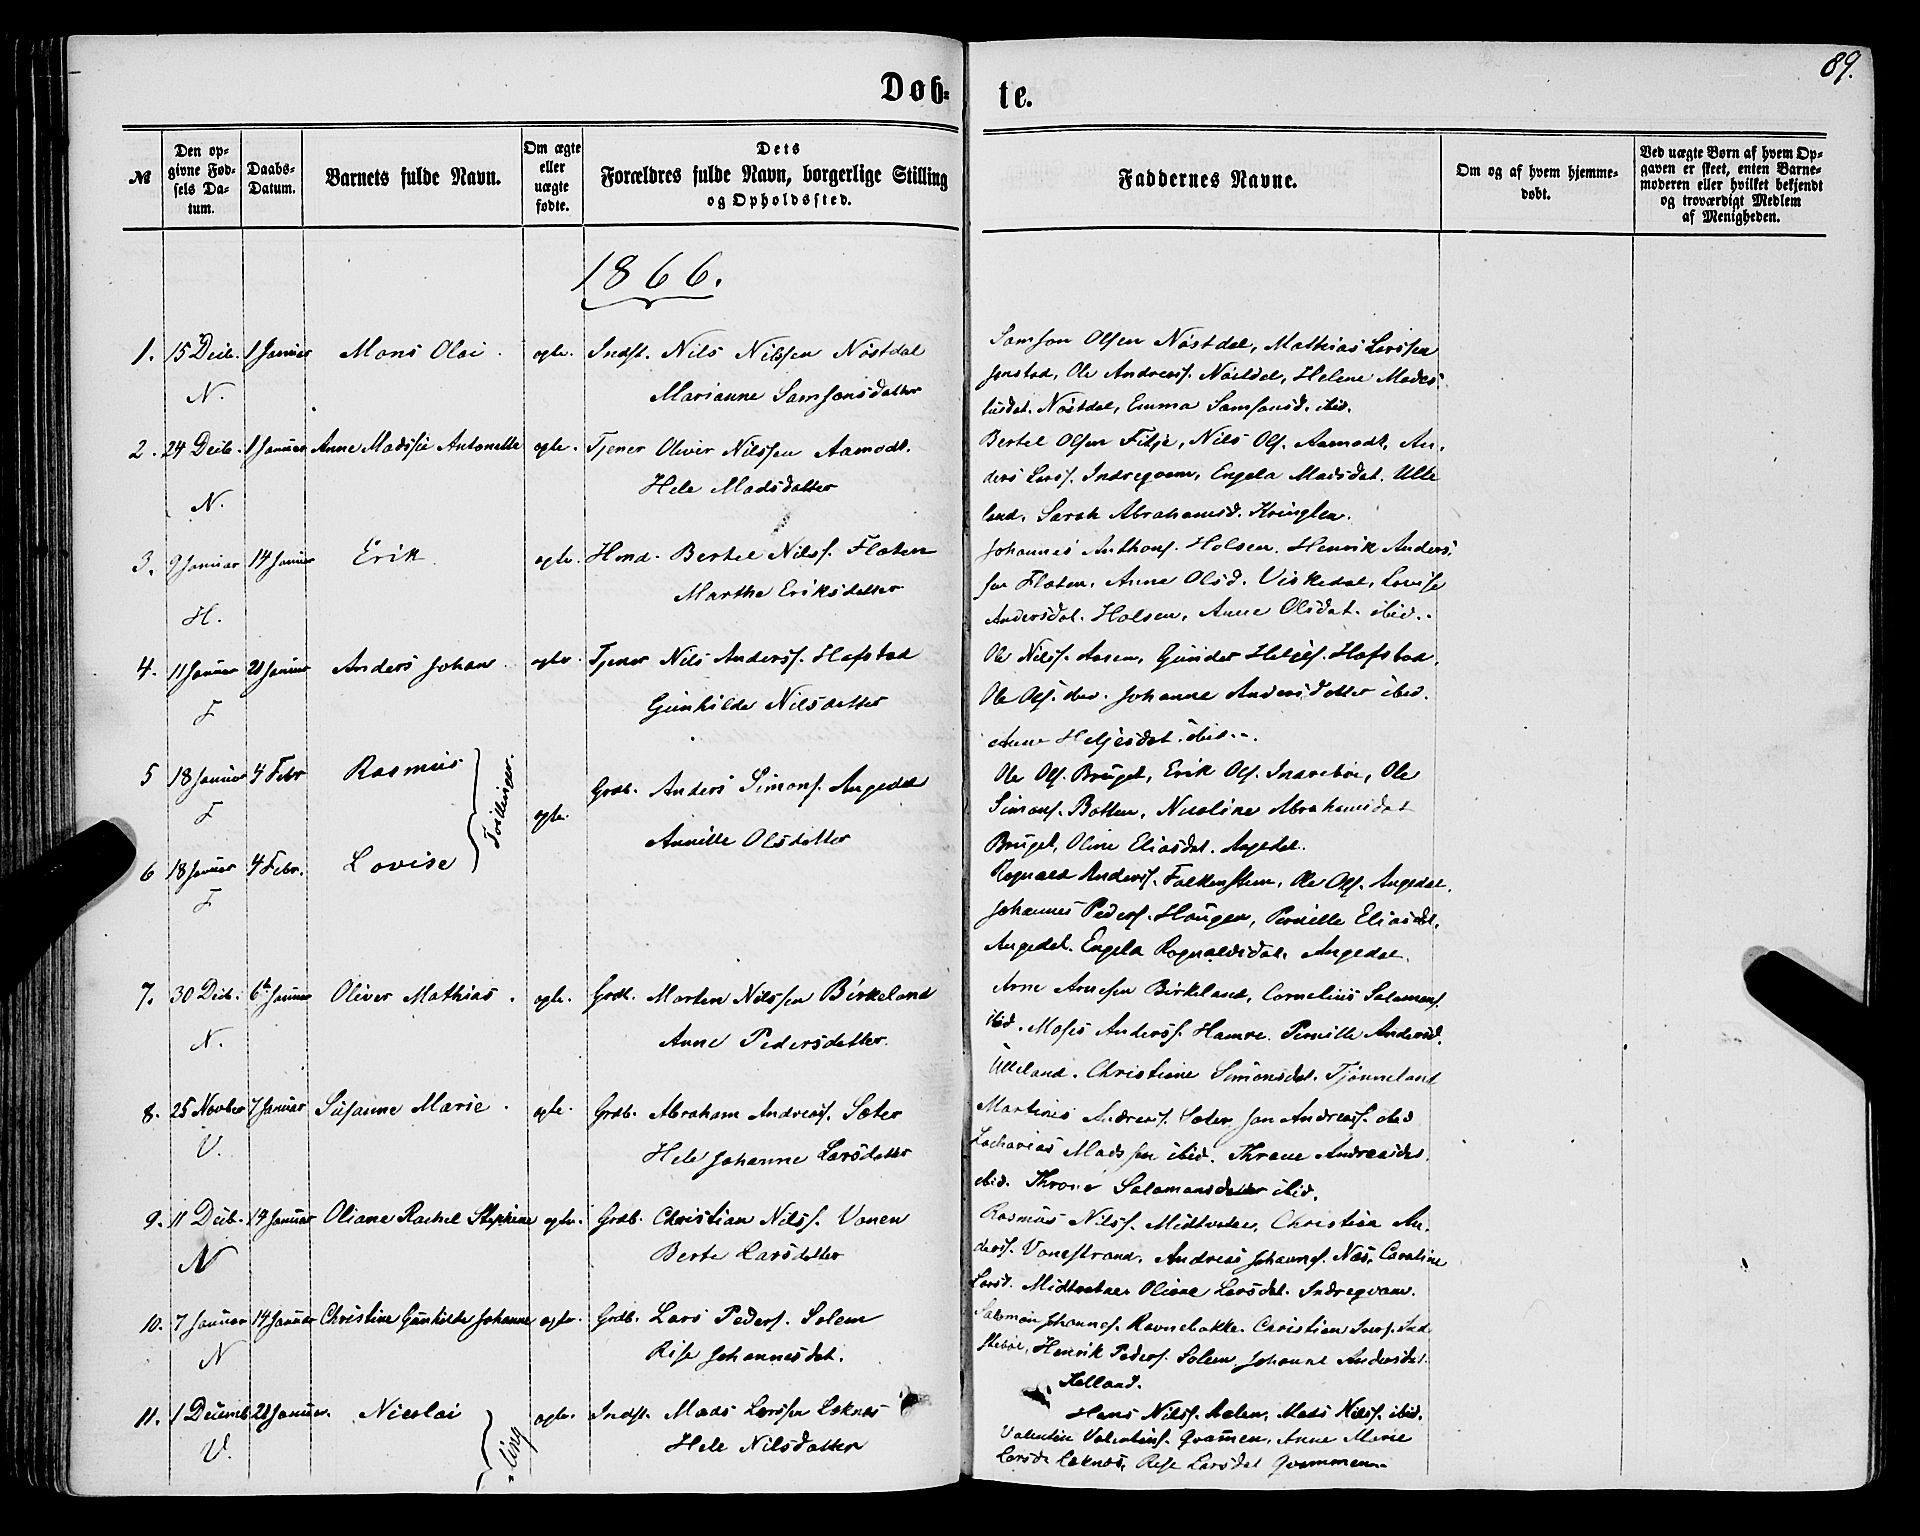 89.
Døb-
te.
№
Den op-
givne Fød-
sels Da-
tum.
Daabs-
Datum.
Barnets fulde Navn.
Om ægte
eller
uægte
fødte.
Dets
Forældres fulde Navn, borgerlige Stilling
og Opholdssted.
Faddernes Navne.
Om og af hvem hjemme-
døbt.
Ved uægte Børn af hvem Op-
gaven er skeet, enten Barne-
moderen eller hvilket bekjendt
og troværdigt Medlem
af Menigheden.
1866.
1. 15 Decb. 1 Januar Mons Olai. ægte. Indst. Nils Nilssen Nøstdal
N. Marianne Samsonsdatter
Samson Olsen Nøstdal, Mathias Larssen
Jonstad, Ole Andreas. Nøstdal, Helene
Nøstdal, Emma Samsonsd. ibid.
2. 24 Decb. 1 Januar Anne Madssie Antonette ægte. Tjener Oliver Nilssen Aamodt.
N. Hele Madsdatter
Bertel Olsen Fitje, Nils Ols. Aamodt, An-
ders Lars. Indreqvam, Engela Madsdat. Ulle
land, Sarah Abrahamsd. Kvinglen.
3. 9 Januar 14 Januar Erik. ægte. Hmd. Bertel Nilss. Flaten
H. Marthe Eriksdatter
Johannes Anthons. Holsen. Henrik Anders-
sen Flaten, Anne Olsd. Viskedal, Lovise
Andersdat. Holsen, Anne Olsdat. ibid.
4. 11 Januar 21 Januar Anders Johan. ægte. Tjener Nils Anderss. Hafstad
F Gunhilde Nilsdatter
Ole Nilss. Aasen, Gunder Heljes. Hafstad,
Ole Ols. ibid. Johanne Andersdatter ibid.
Anne Heljesdat. ibid.
5 18 Januar 4 Febr Rasmus Tvillinger. ægte. Grdb. Anders Simons. Angedal
F Annille Olsdatter
Ole Ols. Bruget, Erik Ols. Indrebøe, Ole
Simons. Botten, Nicoline Abrahamsdat
Bruget, Oline Eliasdat. Angedal.
6 18 Januar 4 Febr. Lovise
F
Rognald Anders. Falkensteen, Ole Ols. Angedal,
Johannes Peders. Haugen, Pernille Eliasdat.
Angedal. Engela Rognaldsdat. Angedal.
7. 30 Decb. 6te Januar Oliver Mathias. ægte. Grdb. Morten Nilssen Birkeland
N. Anne Pedersdatter.
Arne Arnesen Birkeland, Cornelius Salamons.
ibid. Moses Anderss. Hamre. Pernille Andersd.
Ulleland. Christiane Simonsdat. Tjønneland
8. 25 Novber 7 Januar Susanne Marie. ægte. Grdb. Abraham Andreas. Sæter
V. Hele Johanne Larsdatter
Martinus Andreas. Sæter, Jon Andreas. ibid
Zacharias Madssen ibid. Throne Andreasdat.
ibid. Throne Salamonsdatter ibid.
9. 11 Decb. 14 Januar Oliane Rachel Stephine ægte. Grdb. Christian Nilss. Vonen
N Berte Larsdatter
Rasmus Nilss. Midtvatne, Christian An-
derss. Vonestrand. Andreas Johannes. Næs, Caroline
Larsd. Midtvatne. Oliane Larsdat. Indreqvam.
10. 7 Januar 14 Januar Christine Gunhilde Johanne ægte. Grdb. Lars Peders. Solem
N Rise Johannesdat.
Salamon Johannes. Ravnebakke. Christian
Henrik Peders. Solem, Johanne Andersdat.
Helland.
11. 1 Decemb. 21 Januar. Nicolai ægte. Indst. Mads Larssen Løknes
V. Hele Nilsdatter
Hans Nilss. Aalen, Mads Nilss. ibid.
Valentin Valentins. Qvammen, Anne Marie
Larsd. Løknes, Rise Larsdat Qvammen.